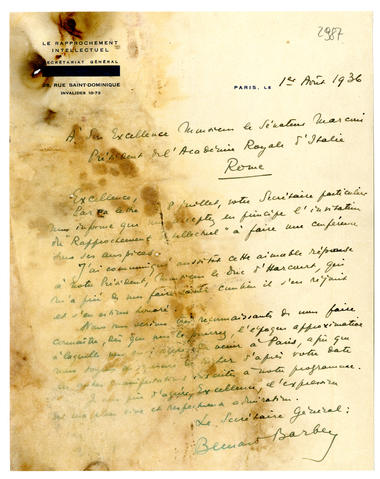 2987
LE RAPPROCHEMENT
INTELLECTUEL
SECRÉTARIAT GÉNÉRAL
RUE SAINT-DOMINIQUE
INVALIDES 10-72
PARIS, LE 1er Août 1936
A Son Excellence Monsieur le Sénateur Marconi
Président de l'Académie Royale d'Italie
Rome
Excellence,
Par sa lettre 8 juillet, votre Secrétaire particulier
nous informe que vous acceptez en principe l'invitation
du "Rapprochement Intellectuel" à faire une conférence
sous ses auspices.
J'ai communiqué aussitôt cette aimable réponse
à notre Président, Monsieur le Duc d'Harcourt, qui
m'a prié de vous faire savoir combien il s'en réjouit
et s'en estime honoré.
Nous vous serions reconnaissants de nous faire
connaître, dès que vous le pourrez, l'époque approximative
à laquelle vous venir à Paris, afin que
nous d'après votre date
les autres manifestations à notre programme.
Je vous prie d'agréer, Excellence, l'expression
de ma plus vive et respectueuse admiration.
Le Secrétaire Général:
Bernard Barbey